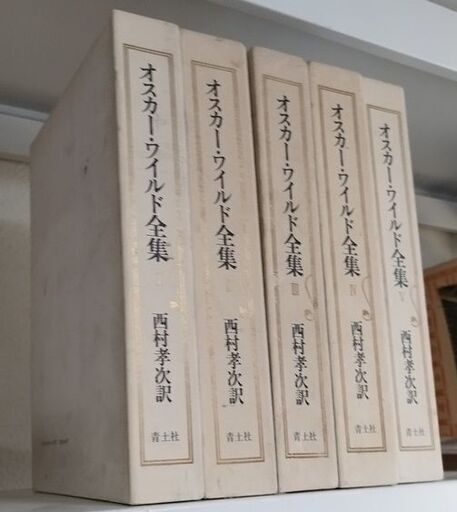 オスカー・ワイルド全集
西村孝次訳
青土社
オスカー・ワイルド全集
西村孝次訳
青土社
オスカー・ワイルド全集 III
西村孝次訳
青土社
オスカー・ワイルド全集 IV
西村孝次訳
青土社
オスカー・ワイルド全集 V
西村孝次訳
青土社